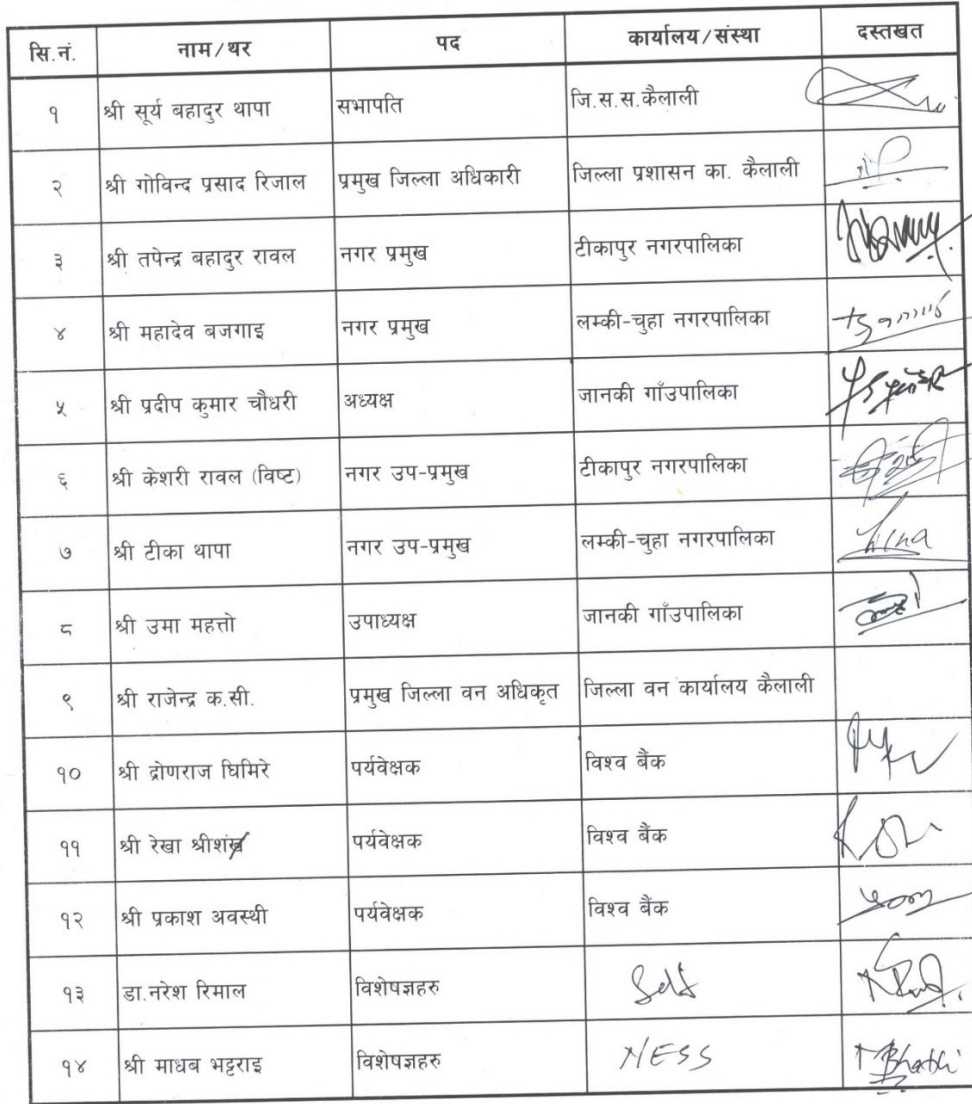 सि.नं. नाम/थर पद कार्यालय/संस्था दस्तखत
१ श्री सूर्य बहादुर थापा सभापति जि.स.स.कैलाली
२ श्री गोविन्द प्रसाद रिजाल प्रमुख जिल्ला अधिकारी जिल्ला प्रशासन का. कैलाली
३ श्री तपेन्द्र बहादुर रावल नगर प्रमुख टीकापुर नगरपालिका
४ श्री महादेव बजगाइ नगर प्रमुख लम्की-चुहा नगरपालिका
५ श्री प्रदीप कुमार चौधरी अध्यक्ष जानकी गाँउपालिका
६ श्री केशरी रावल (विष्ट) नगर उप-प्रमुख टीकापुर नगरपालिका
७ श्री टीका थापा नगर उप-प्रमुख लम्की-चुहा नगरपालिका
८ श्री उमा महत्तो उपाध्यक्ष जानकी गाँउपालिका
९ श्री राजेन्द्र क.सी. प्रमुख जिल्ला वन अधिकृत जिल्ला वन कार्यालय कैलाली
१० श्री द्रोणराज घिमिरे पर्यवेक्षक विश्व बैंक
११ श्री रेखा पर्यवेक्षक विश्व बैंक
१२ श्री प्रकाश अवस्थी पर्यवेक्षक विश्व बैंक
१३ डा.नरेश रिमाल विशेषज्ञहरु Self
१४ श्री माधब भट्टराइ विशेषज्ञहरु NESS